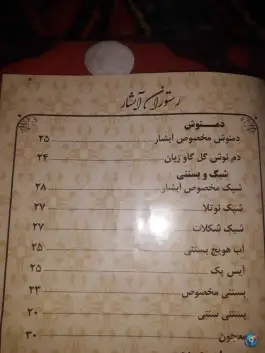 رستوران آبشار
دمنوش
دمنوش مخصوص ابشار ۲۵
دم نوش گل گاو زبان ۲۴
شیک و بستنی
شیک مخصوص ابشار ۲۸
شیک نوتلا ۲۷
شیک شکلات ۲۷
اب هویج بستنی ۲۵
ایس پک ۲۵
بستنی مخصوص ۲۳
بستنی سنتی ۲۰
معجون ۳۰